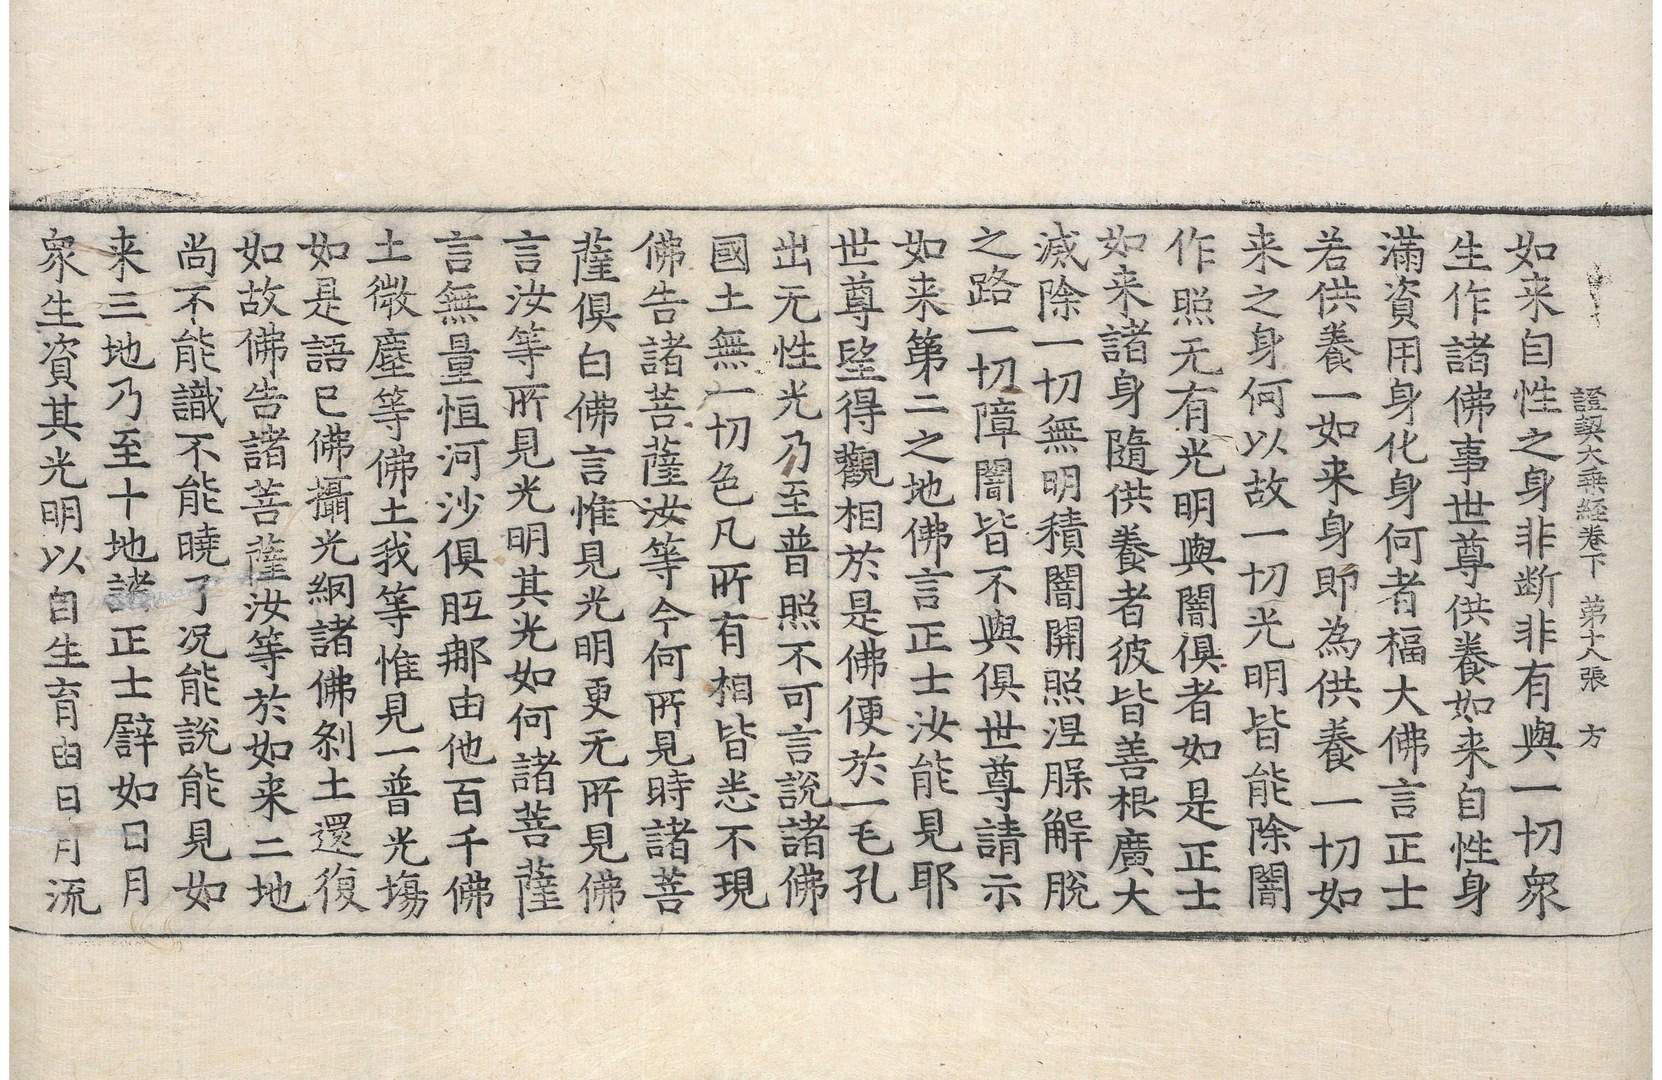 證契大乘經卷下　第十八張　方
如来自性之身非断非有與一切衆
生作諸佛事世尊供養如来自性身
滿資用身化身何者福大佛言正士
若供養一如来身即為供養一切如
来之身何以故一切光明皆能除闇
作照无有光明與闇俱者如是正士
如来諸身隨供養者彼皆善根廣大
滅除一切無明積闇開照涅槃解脫
之路一切障闇皆不與俱世尊請示
如来第二之地佛言正士汝能見耶
世尊望得觀相於是佛便於一毛孔
出无性光乃至普照不可言說諸佛
國土無一切色凡所有相皆悉不現
佛告諸菩薩汝等今何所見時諸菩
薩俱白佛言惟見光明更无所見佛
言汝等所見光明其光如何諸菩薩
言無量恒河沙俱胝那由他百千佛
土微塵等佛土我等惟見一普光場
如是語已佛攝光網諸佛剎土還復
如故佛告諸菩薩汝等於如来二地
尚不能識不能曉了况能說能見如
来三地乃至十地諸正士譬如日月
衆生資其光明以自生育由日月流